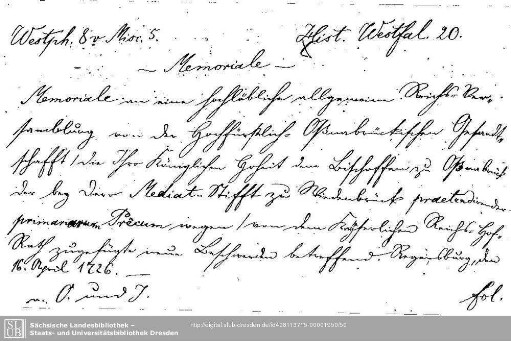 Westph. 8v Misc. 5.
Hist. Westfal. 20.
– Memoriale –
Memoriale an eine hochlöbliche allgemeine Reichs Ver-
samblung von der Hochfürstlich Oßnabrückischen Gesandt-
schafft / die Ihro Königlichen Hoheit dem Bischoffen zu Oßnabrück
der bey dem Mediat-Stifft zu Wiedenbrück praetendirender
primariarum Precum wegen / von dem Kayserlichen Reichs Hof-
Rath zugefügte neue Beschwerden betreffend Regensburg, den
16. April 1726. —
v. O. und J.
fol.
Sächsische Landesbibliothek –
Staats- und Universitätsbibliothek Dresden